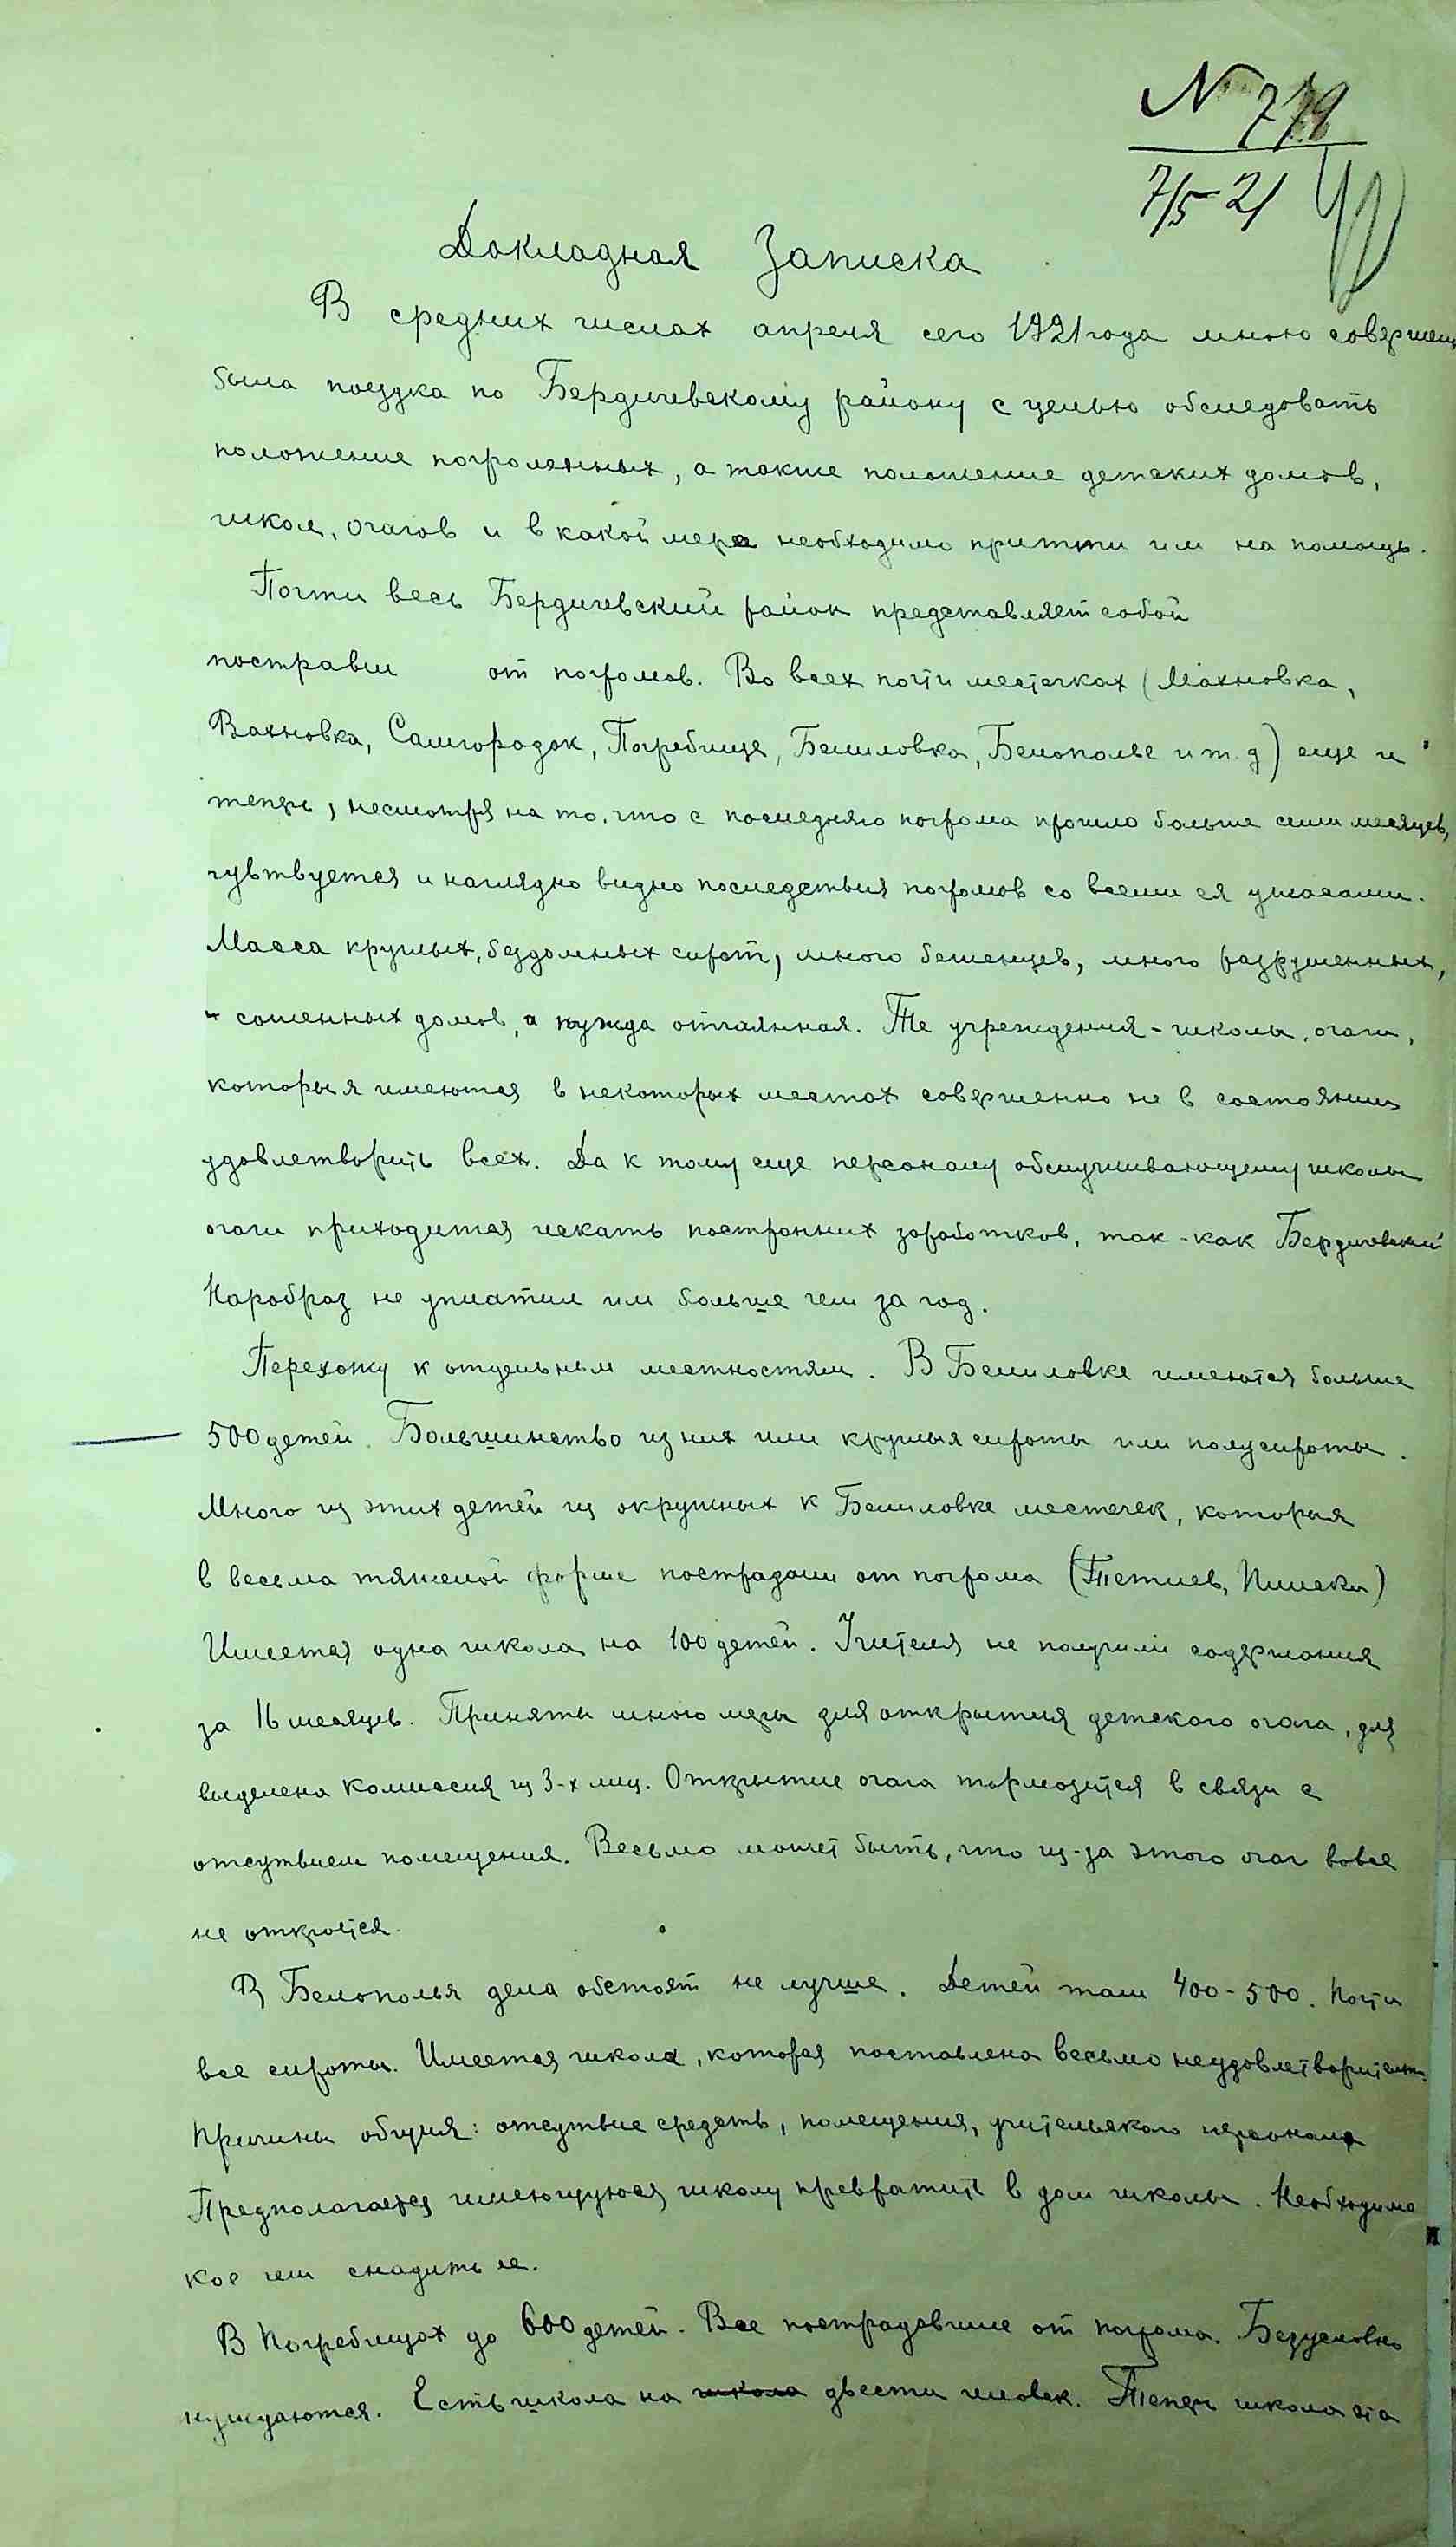 N 779
7/5 21
Докладная Записка
В средних числах апреля сего 1921 года мною совершен
была поездка по Бердичевскому району с целью обследовать
положение погромленных, а также положение детских домов,
школ, очагов и в какой мере необходимо притти им на помощь.
Почти весь Бердичевский район представляет собой
постравш от погромов. Во всех почти местечках (Махновка,
Вахновка, Самгородок, Погребище, Белиловка, Белополье и т.д) еще и
теперь, несмотря на то, что с последняго погрома прошло больше семи месяцев,
чувтвуется и наглядно видно последствия погромов со всеми ея ужасами.
Масса круглых, бездомных сирот, много беженцев, много разрушенных,
и сожженных домов, а нужда отчаянная. Те учреждения - школы, очаги,
которыя имеются в некоторых местах совершенно не в состоянии
удовлетворить всех. Да к тому еще персоналу обслуживающему школы
очаги приходится искать постронних заработков, так-как Бердичевский
Наробраз не уплатил им больше чем за год.
Перехожу к отдельным местностям. В Белиловке имеются больше
500 детей. Большинство из них или круглыя сироты или полусироты.
Много из этих детей из окружных к Белиловке местечек, которыя
в весьма тяжелой форме пострадали от погрома (Тетиев, Пиляки)
Имеется одна школа на 100 детей. Учителя не получили содержания
за 16 месяцев. Приняты мною меры для открытия детского очага, для
выделена комиссия из 3-х лиц. Открытие очага тормозится в связи с
отсутвием помещения. Весьмо может быть, что из-за этого очаг вовсе
не откроется.
В Белополья дела обстоят не лучше. Детей там 400-500. Почти
все сироты. Имеется школа, которая поставлена весьмо неудовлетворительн.
Причины общия: отсутвие средств, помещения, учительского персонала
Предполагается имеющуюся школу превратить в дом школы. Необходимо
кое чем снадить ее.
В Погребищах до 600 детей. Все пострадавшие от погрома. Безусловно
нуждаются. Есть школа на школа двести человек. Теперь школа эта